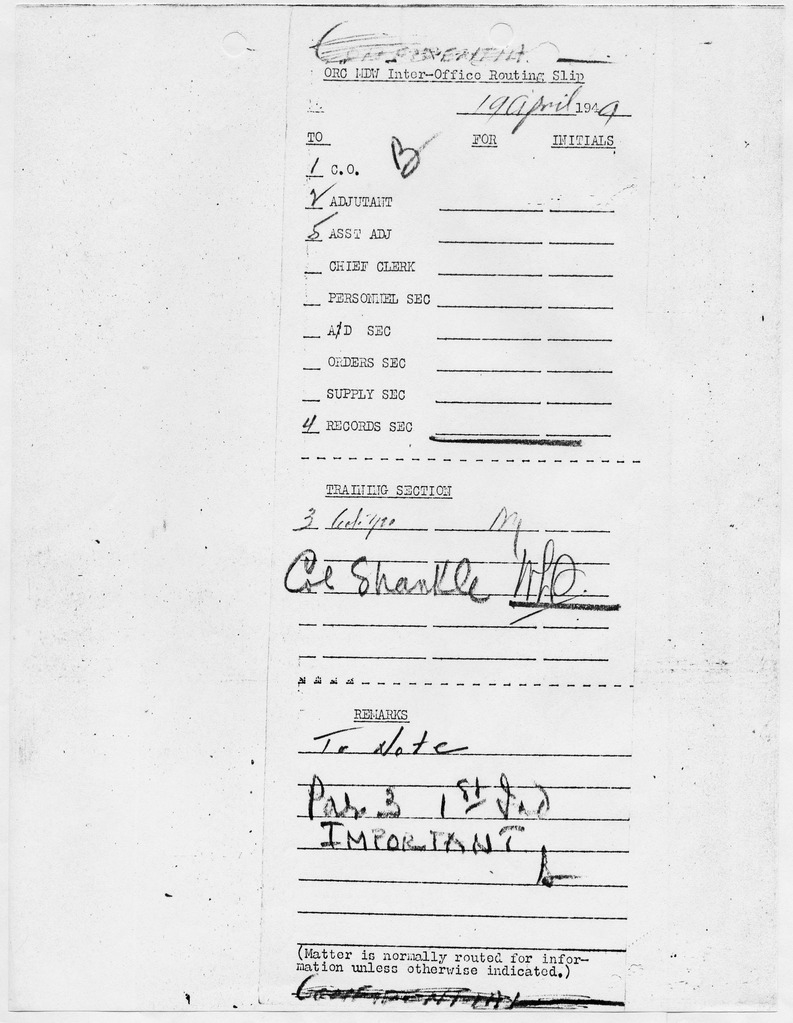 CONFIDENTIAL
ORC MDW Inter-Office Routing Slip
19 April 1949
TO FOR INITIALS
1 C.O. B
2 ADJUTANT
5 ASST ADJ
CHIEF CLERK
PERSONNEL SEC
A/D SEC
ORDERS SEC
SUPPLY SEC
4 RECORDS SEC
TRAINING SECTION
3
Col Shankle
REMARKS
To Note
Par. 3 1st Ind
IMPORTANT
(Matter is normally routed for infor-
mation unless otherwise indicated.)
CONFIDENTIAL